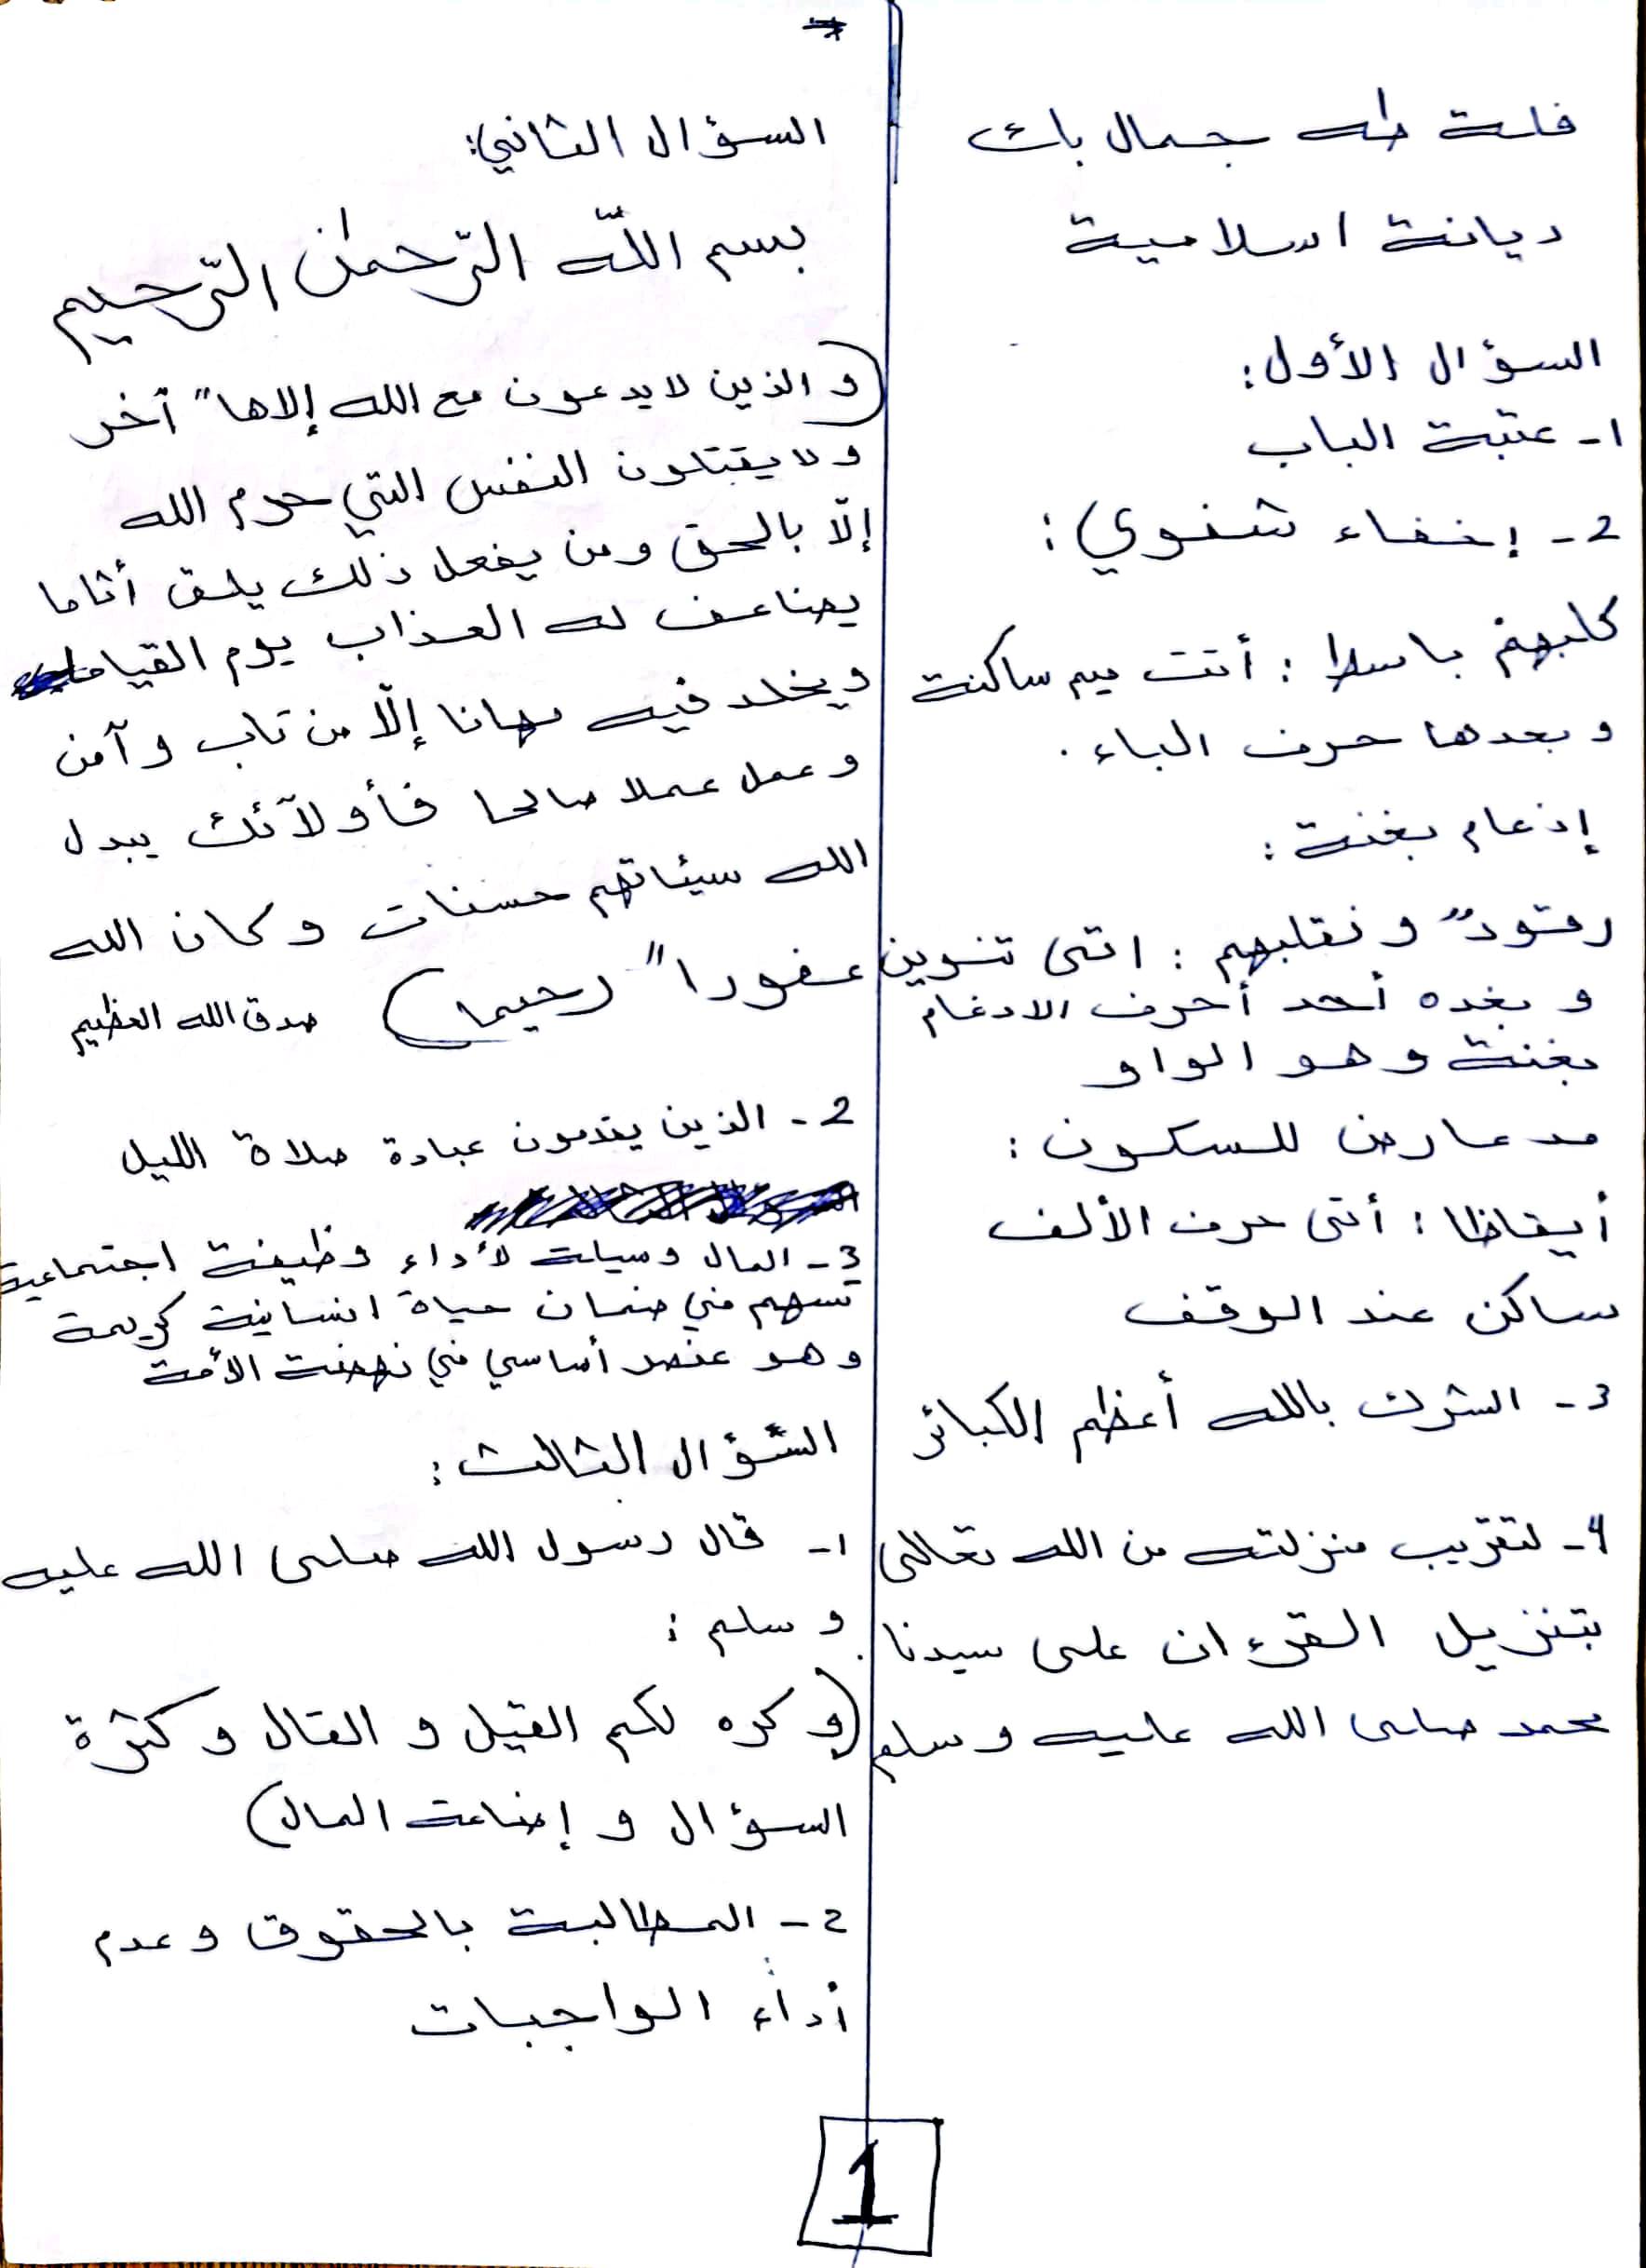 فلة طه جمال باك
ديانة اسلامية
السؤال الأول:
1- عتبة الباب
2- إخفاء شفوي:
كلبهم باسط: أتت ميم ساكنة
وبعدها حرف الباء.
إدغام بغنة:
رقود" و نقلبهم: اتى تنوين
و بعده أحد أحرف الادغام
بغنة و هو الواو
مد عارض للسكون:
أيقاظا: أتى حرف الألف
ساكن عند الوقف
3- الشرك بالله أعظم الكبائر
4- لتقريب منزلته من الله تعالى
بتنزيل القرءان على سيدنا
محمد صلى الله عليه وسلم
السؤال الثاني:
بسم اللّه الرّحمٰن الرّحيم
(و الذين لا يدعون مع الله إلاها" آخر
ولا يقتلون النفس التي حرم الله
إلّا بالحق ومن يفعل ذلك يلق أثاما
يضاعف له العذاب يوم القيامة
ويخلد فيه مهانا إلّا من تاب وآمن
وعمل عملا صالحا فأولآئك يبدل
الله سيئاتهم حسنات وكان الله
غفورا" رحيما) صدق الله العظيم
2- الذين يقدمون عبادة صلاة الليل
3- المال وسيلة لأداء وظيفة اجتماعية
تسهم في ضمان حياة انسانية كريمة
وهو عنصر أساسي في نهضة الأمة
السؤال الثالث:
1- قال رسول الله صلى الله عليه
وسلم:
(و كره لكم القيل و القال و كثرة
السؤال و إضاعة المال)
2- المطالبة بالحقوق وعدم
أداء الواجبات
1